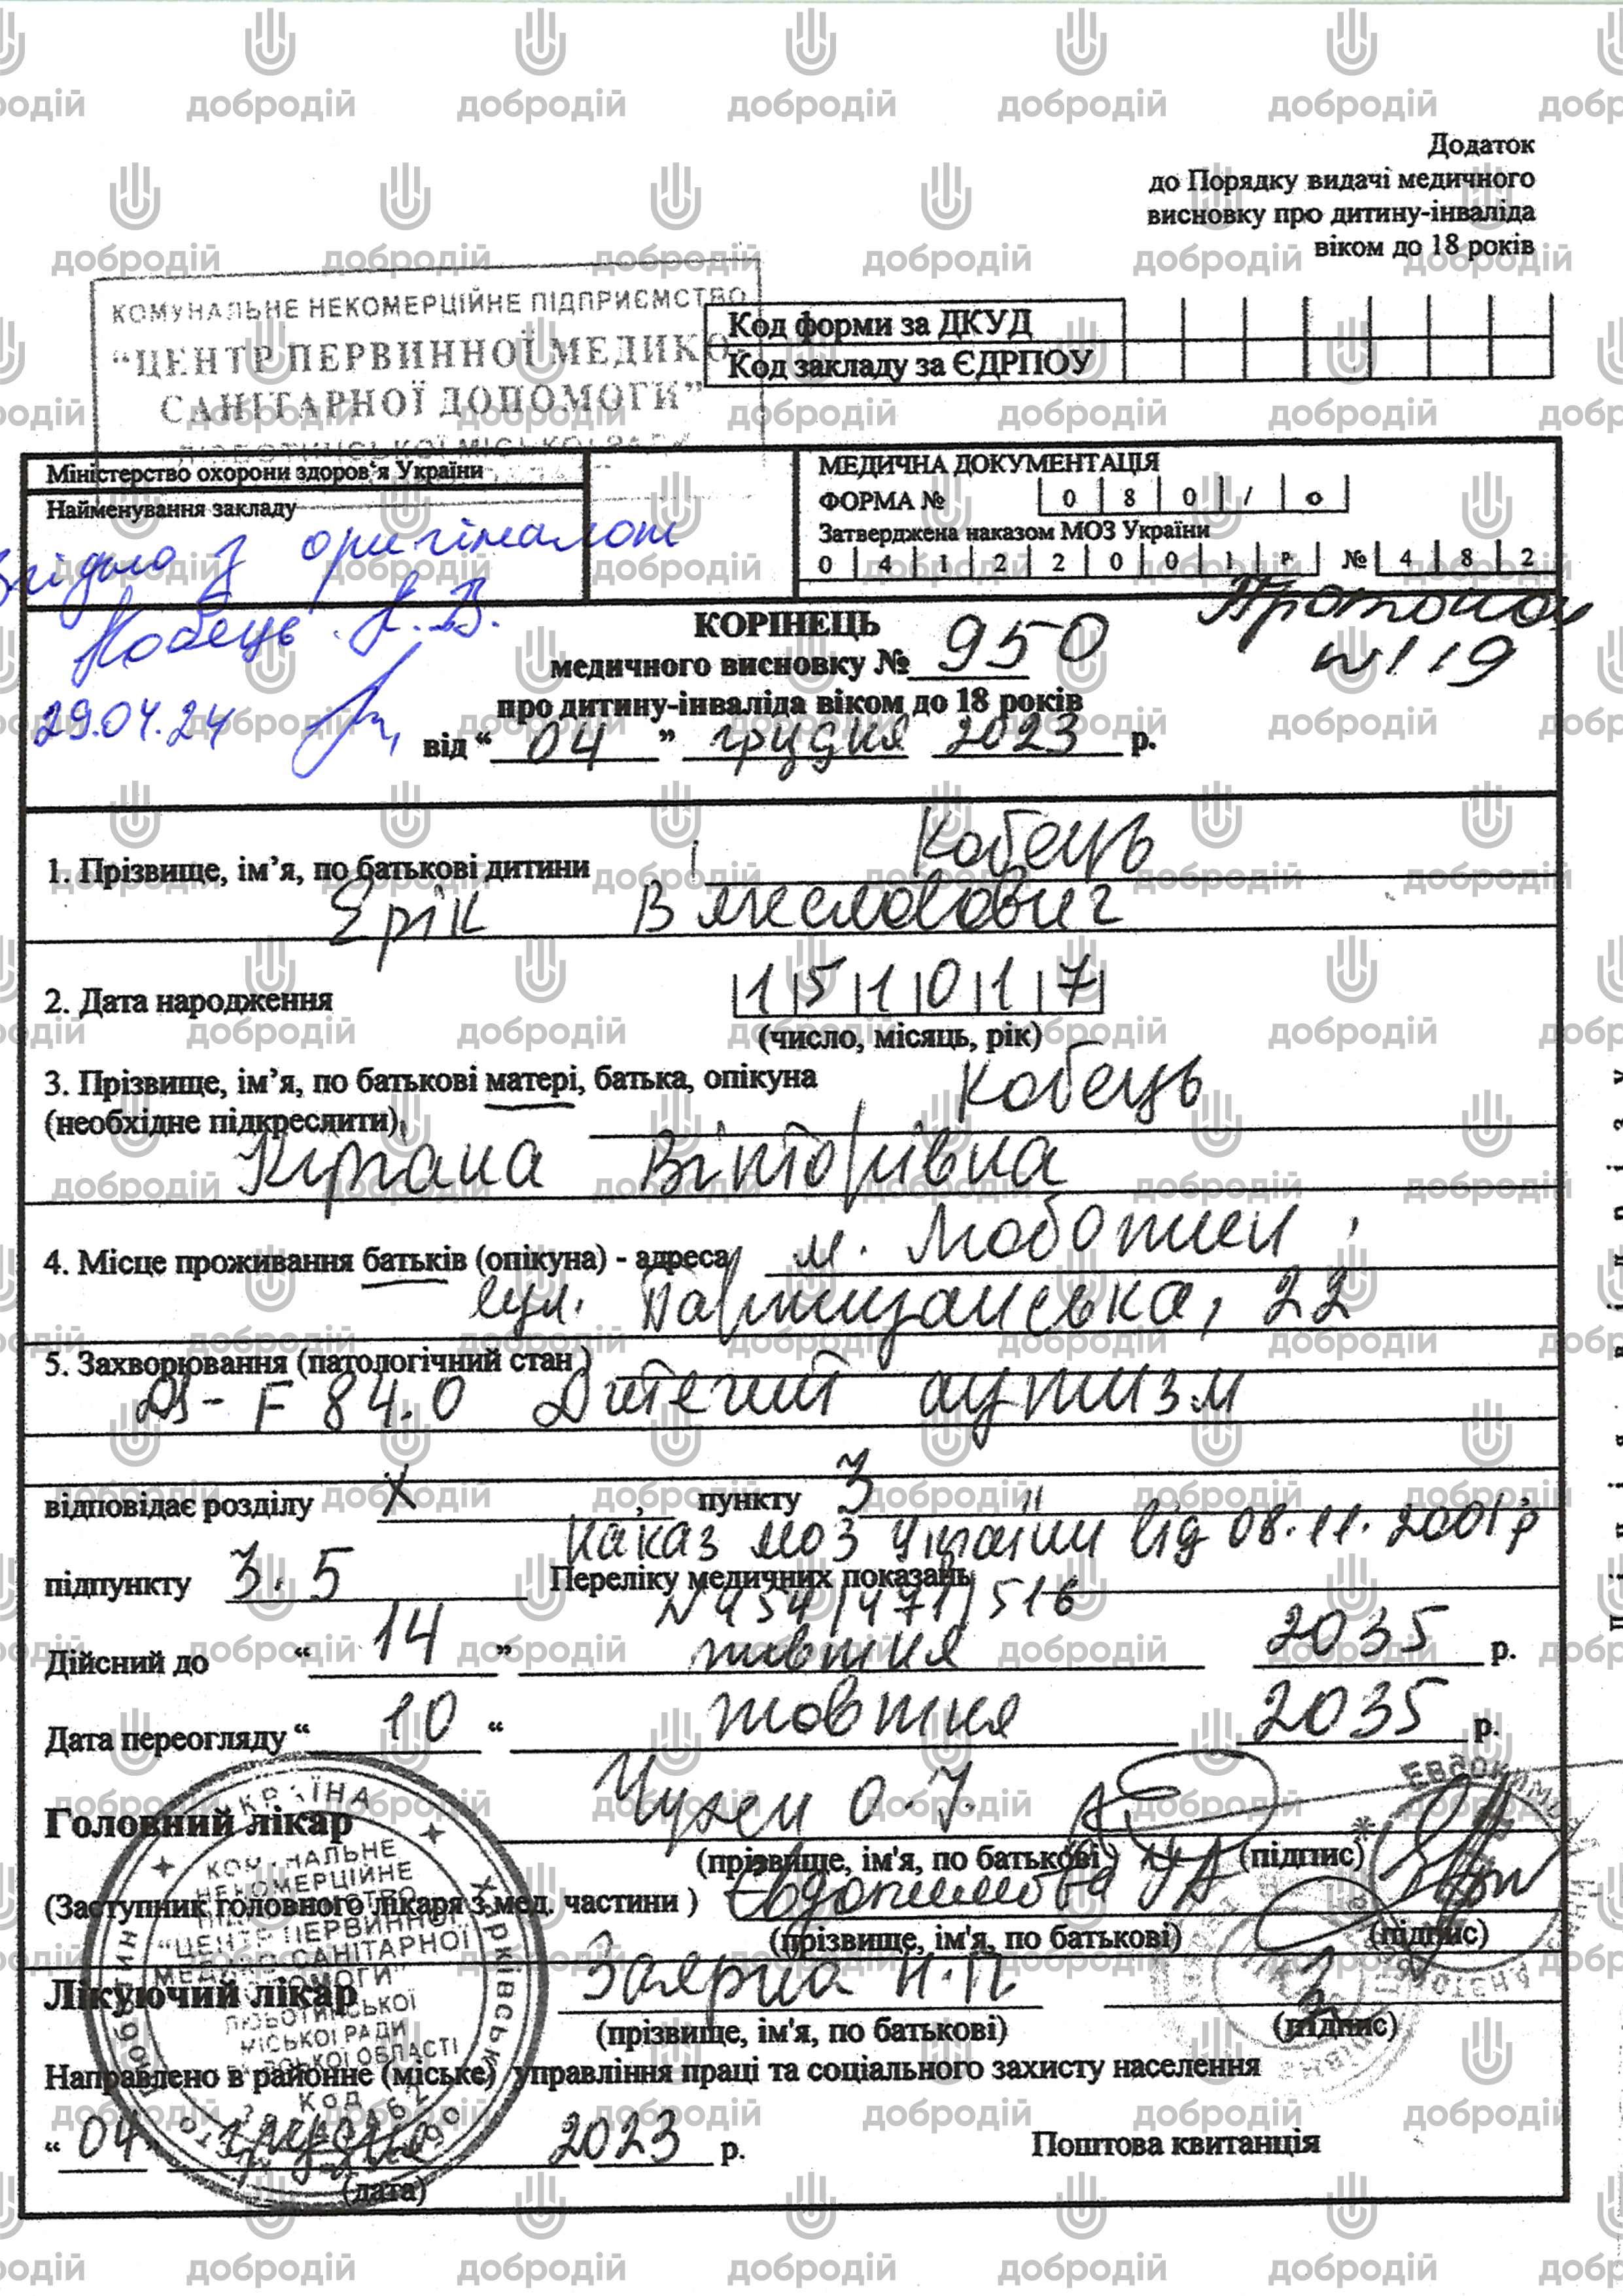 Додаток
до Порядку видачі медичного
висновку про дитину-інваліда
віком до 18 років
КОМУНАЛЬНЕ НЕКОМЕРЦІЙНЕ ПІДПРИЄМСТВО
“ЦЕНТР ПЕРВИННОЇ МЕДИКО
САНІТАРНОЇ ДОПОМОГИ”
ЛЮБОТИНСЬКОЇ МІСЬКОЇ РАДИ
Код форми за ДКУД
Код закладу за ЄДРПОУ
Міністерство охорони здоров‘я України
Найменування закладу
МЕДИЧНА ДОКУМЕНТАЦІЯ
ФОРМА № 0 8 0 / о
Затверджена наказом МОЗ України
0 4 1 2 2 0 0 1 р № 4 8 2
Згідно з оригіналом
Кобець К.В.
29.04.24
Протокол
№119
КОРІНЕЦЬ
медичного висновку № 950
про дитину-інваліда віком до 18 років
від “ 04 ” грудня 2023 р.
1. Прізвище, ім’я, по батькові дитини Кобець
Ерік Вячеславович
2. Дата народження 1 5 1 0 1 7
(число, місяць, рік)
3. Прізвище, ім’я, по батькові матері, батька, опікуна Кобець
(необхідне підкреслити)
Кіріана Вікторівна
4. Місце проживання батьків (опікуна) - адреса м. Люботин,
вул. Партизанська, 22
5. Захворювання (патологічний стан )
Ds- F 84.0 Дитячий аутизм
відповідає розділу X , пункту 3
Наказ МОЗ України від 08.11.2001р
підпункту 3.5 Переліку медичних показань
№ 454/471/516
Дійсний до “ 14 ” жовтня 2035 р.
Дата переогляду “ 10 “ жовтня 2035 р.
Головний лікар О.І.
(прізвище, ім'я, по батькові) (підпис)
(Заступник головного лікаря з мед. частини ) Євдокимова
(прізвище, ім'я, по батькові) (підпис)
Лікуючий лікар Заярна Н.П
(прізвище, ім'я, по батькові) (підпис)
Направлено в районне (міське) управління праці та соціального захисту населення
“ 04 ” грудня 2023 р. Поштова квитанція
(дата)
УКРАЇНА
КОМУНАЛЬНЕ
НЕКОМЕРЦІЙНЕ
ПІДПРИЄМСТВО
“ЦЕНТР ПЕРВИННОЇ
МЕДИКО-САНІТАРНОЇ
ДОПОМОГИ”
ЛЮБОТИНСЬКОЇ
МІСЬКОЇ РАДИ
ХАРКІВСЬКОЇ ОБЛАСТІ
КОД
добродій